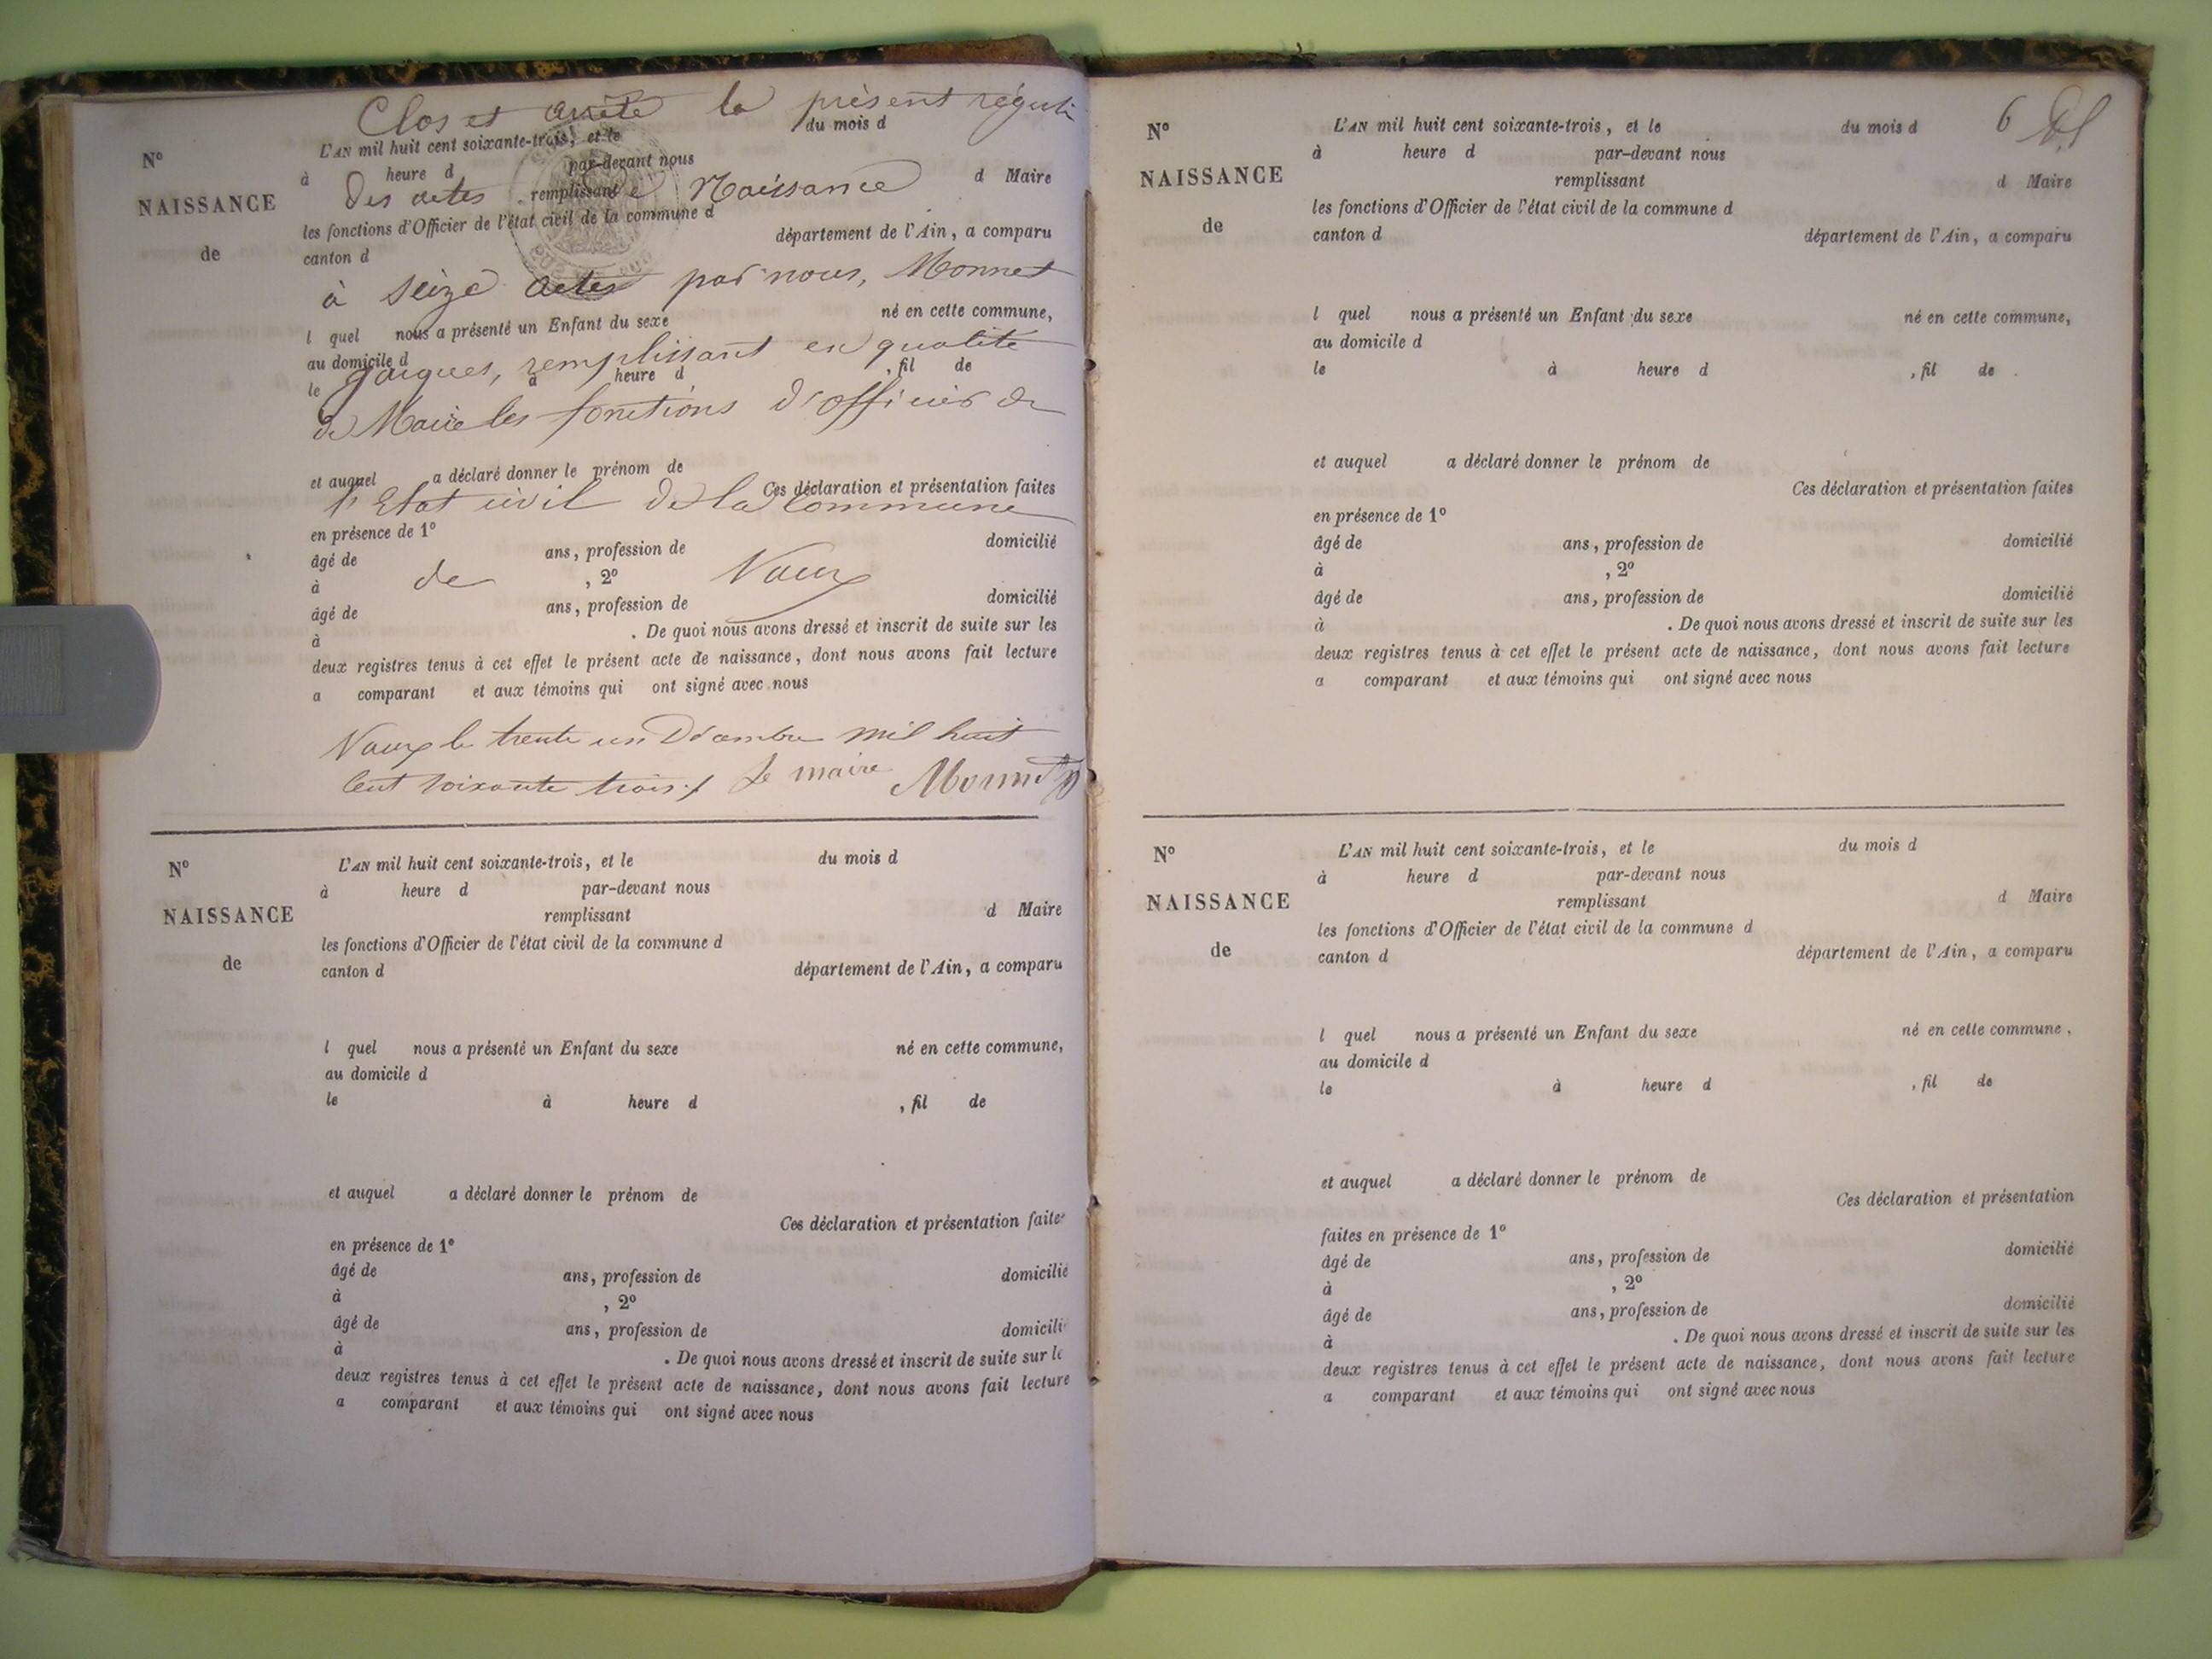 Clos et arrêté le présent régist
L'AN mil huit cent soixante-trois, et le du mois d
N° à heure d par-devant nous
Des actes de Naissance
NAISSANCE remplissant d Maire
les fonctions d'Officier de l'état civil de la commune d
de canton d département de l'Ain, a comparu
à seize actes par nous, Monnet
l quel nous a présenté un Enfant du sexe né en cette commune,
au domicile d
Jacques, remplissant en qualité
le à heure d , fil de
de Maire les fonctions d'officier de
et auquel a déclaré donner le prénom de
l'Etat civil de la Commune
Ces déclaration et présentation faites
en présence de 1°
âgé de ans, profession de domicilié
de Vaux
à , 2°
âgé de ans, profession de domicilié
à . De quoi nous avons dressé et inscrit de suite sur les
deux registres tenus à cet effet le présent acte de naissance, dont nous avons fait lecture
a comparant et aux témoins qui ont signé avec nous
Vaux le trente un Décembre mil huit
Cent soixante trois Le maire Monnet
N° L'AN mil huit cent soixante-trois, et le du mois d
à heure d par-devant nous
NAISSANCE remplissant d Maire
les fonctions d'Officier de l'état civil de la commune d
de canton d département de l'Ain, a comparu
l quel nous a présenté un Enfant du sexe né en cette commune,
au domicile d
le à heure d , fil de
et auquel a déclaré donner le prénom de
Ces déclaration et présentation faites
en présence de 1°
âgé de ans, profession de domicilié
à , 2°
âgé de ans, profession de domicili
à . De quoi nous avons dressé et inscrit de suite sur le
deux registres tenus à cet effet le présent acte de naissance, dont nous avons fait lecture
a comparant et aux témoins qui ont signé avec nous
6
N° L'AN mil huit cent soixante-trois, et le du mois d
à heure d par-devant nous
NAISSANCE remplissant d Maire
les fonctions d'Officier de l'état civil de la commune d
de canton d département de l'Ain, a comparu
l quel nous a présenté un Enfant du sexe né en cette commune,
au domicile d
le à heure d , fil de
et auquel a déclaré donner le prénom de
Ces déclaration et présentation faites
en présence de 1°
âgé de ans, profession de domicilié
à , 2°
âgé de ans, profession de domicilié
à . De quoi nous avons dressé et inscrit de suite sur les
deux registres tenus à cet effet le présent acte de naissance, dont nous avons fait lecture
a comparant et aux témoins qui ont signé avec nous
N° L'AN mil huit cent soixante-trois, et le du mois d
à heure d par-devant nous
NAISSANCE remplissant d Maire
les fonctions d'Officier de l'état civil de la commune d
de canton d département de l'Ain, a comparu
l quel nous a présenté un Enfant du sexe né en cette commune,
au domicile d
le à heure d , fil de
et auquel a déclaré donner le prénom de
Ces déclaration et présentation
faites en présence de 1°
âgé de ans, profession de domicilié
à , 2°
âgé de ans, profession de domicilié
à . De quoi nous avons dressé et inscrit de suite sur les
deux registres tenus à cet effet le présent acte de naissance, dont nous avons fait lecture
a comparant et aux témoins qui ont signé avec nous